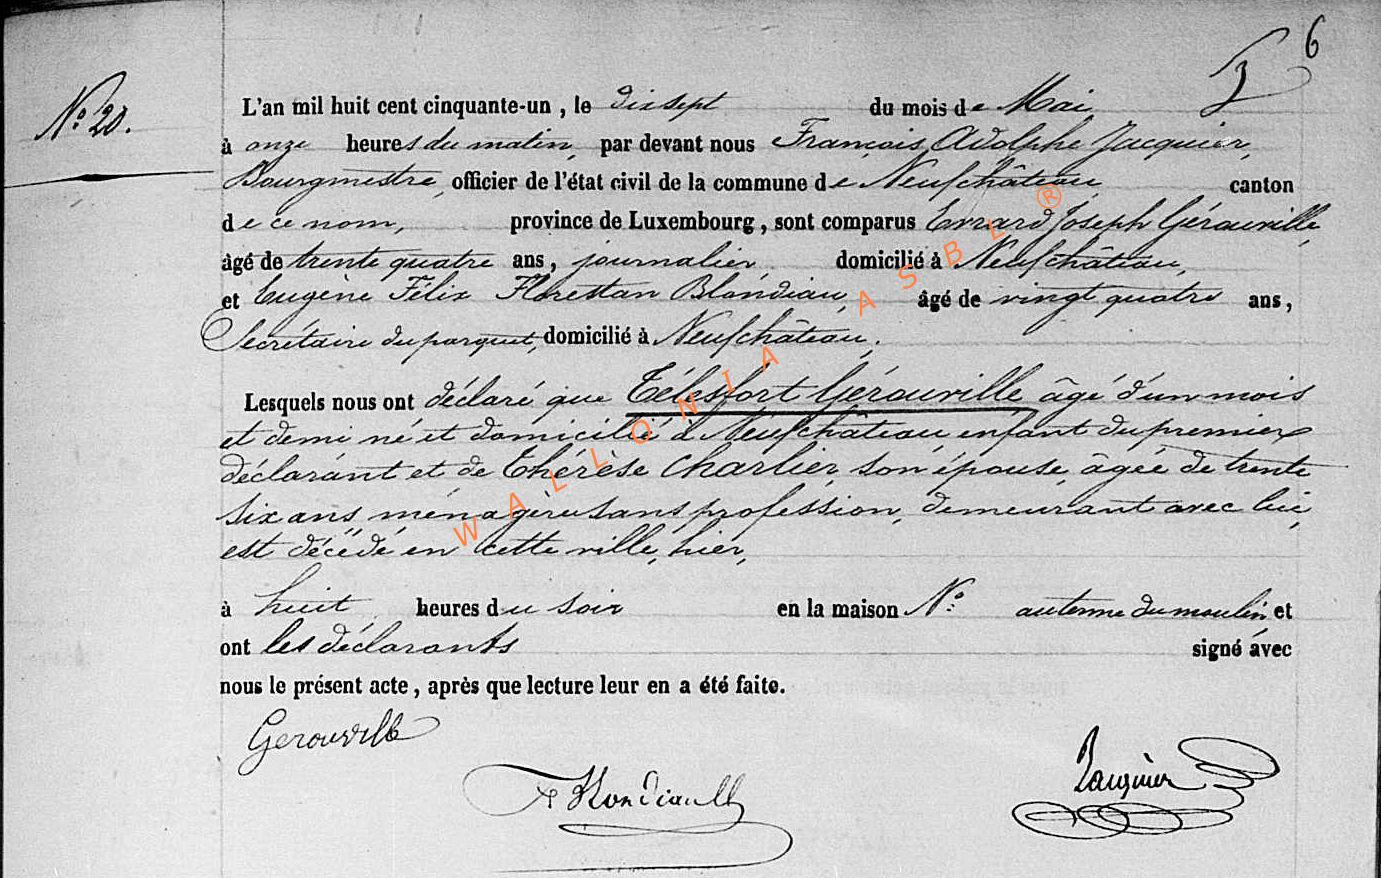 6
3
N.º 20.
L'an mil huit cent cinquante-un , le dix sept du mois de Mai
à onze heures du matin, par devant nous François Adolphe Jacquier,
Bourgmestre, officier de l'état civil de la commune de Neufchâteau canton
de ce nom, province de Luxembourg , sont comparus Evrard Joseph Gérouville,
âgé de trente quatre ans , journalier, domicilié à Neufchâteau,
et Eugène Félix Florestan Blondiau, âgé de vingt quatre ans ,
Secrétaire du parquet, domicilié à Neufchâteau,
Lesquels nous ont déclaré que Télesfort Gérouville âgé d'un mois
et demi né et domicilié à Neufchâteau, enfant du premier
déclarant et de Thérèse Charlier, son épouse, âgée de trente
six ans, ménagère sans profession, demeurant avec lui,
est décédé en cette ville, hier,
à huit heures du soir en la maison N.º au terme du moulin, et
ont les déclarants signé avec
nous le présent acte , après que lecture leur en a été faite.
Gerouville
Jacquier
WALLONIA ASBL ®